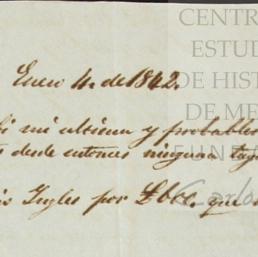 CENTR
ESTUD
DE HIST
DE ME
FUND
Carlo
Enero 4. de 1842.
bi mi ultima y probable
desde entonces ninguna
Ingles por que